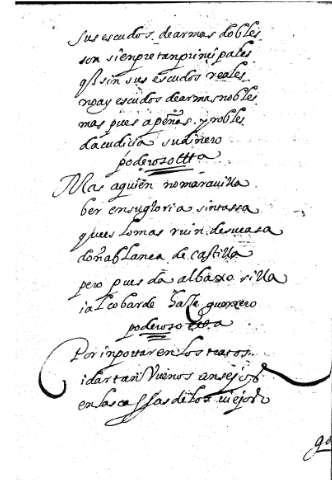 sus escudos dearmas dobles
son sienpre tanprinsipales
q sin sus escudos reales
no ay escudos dearmas nobles
mas pues a peñas y robles
da cudisia su dinero
poderoso etta
Mas aquien nomaravilla
ber ensugloria sintassa
q ues lo mas ruin desucasa
doña blanca de castilla
pero pues da albaxo silla
i al cobarde hase guerrero
poderoso etta
Por inportar en los tratos
i dar tan vuenos
en las cassas de los viejos